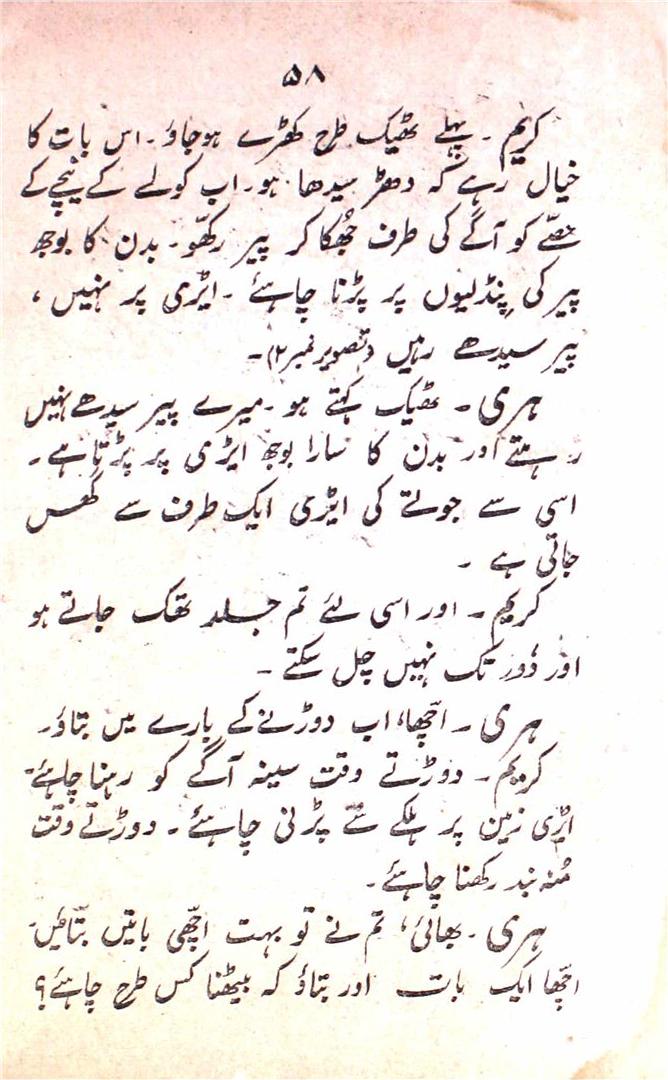 ۵۸
کریم ۔ پہلے ٹھیک طرح کھڑے ہوجاؤ۔ اس بات کا
خیال رہے کہ دھڑ سیدھا ہو۔ اب کولے کے نیچے کے
حصّے کو آگے کی طرف جُھکا کر پیر رکھّو۔ بدن کا بوجھ
پیر کی پِنڈلیوں پر پڑنا چاہئے ۔ ایڑی پر نہیں ،
پیر سیدھے رہیں (تصویر نمبر ۲)۔
ہری ۔ ٹھیک کہتے ہو ۔ میرے پیر سیدھے نہیں
رہتے اور بدن کا سارا بوجھ ایڑی پر پڑتا ہے ۔
اسی سے جوتے کی ایڑی ایک طرف سے گھس
جاتی ہے ۔
کریم ۔ اور اسی لئے تم جلد تھک جاتے ہو
اور دُور تک نہیں چل سکتے ۔
ہری ۔ اچّھا، اب دوڑنے کے بارے میں بتاؤ۔
کریم ۔ دوڑتے وقت سینہ آگے کو رہنا چاہئے۔
ایڑی زمین پر ہلکے سے پڑنی چاہئے ۔ دوڑتے وقت
مُنہ بند رکھنا چاہئے ۔
ہری ۔ بھائی، تم نے تو بہت اچّھی باتیں بتائیں۔
اچّھا ایک بات اور بتاؤ کہ بیٹھنا کس طرح چاہئے؟